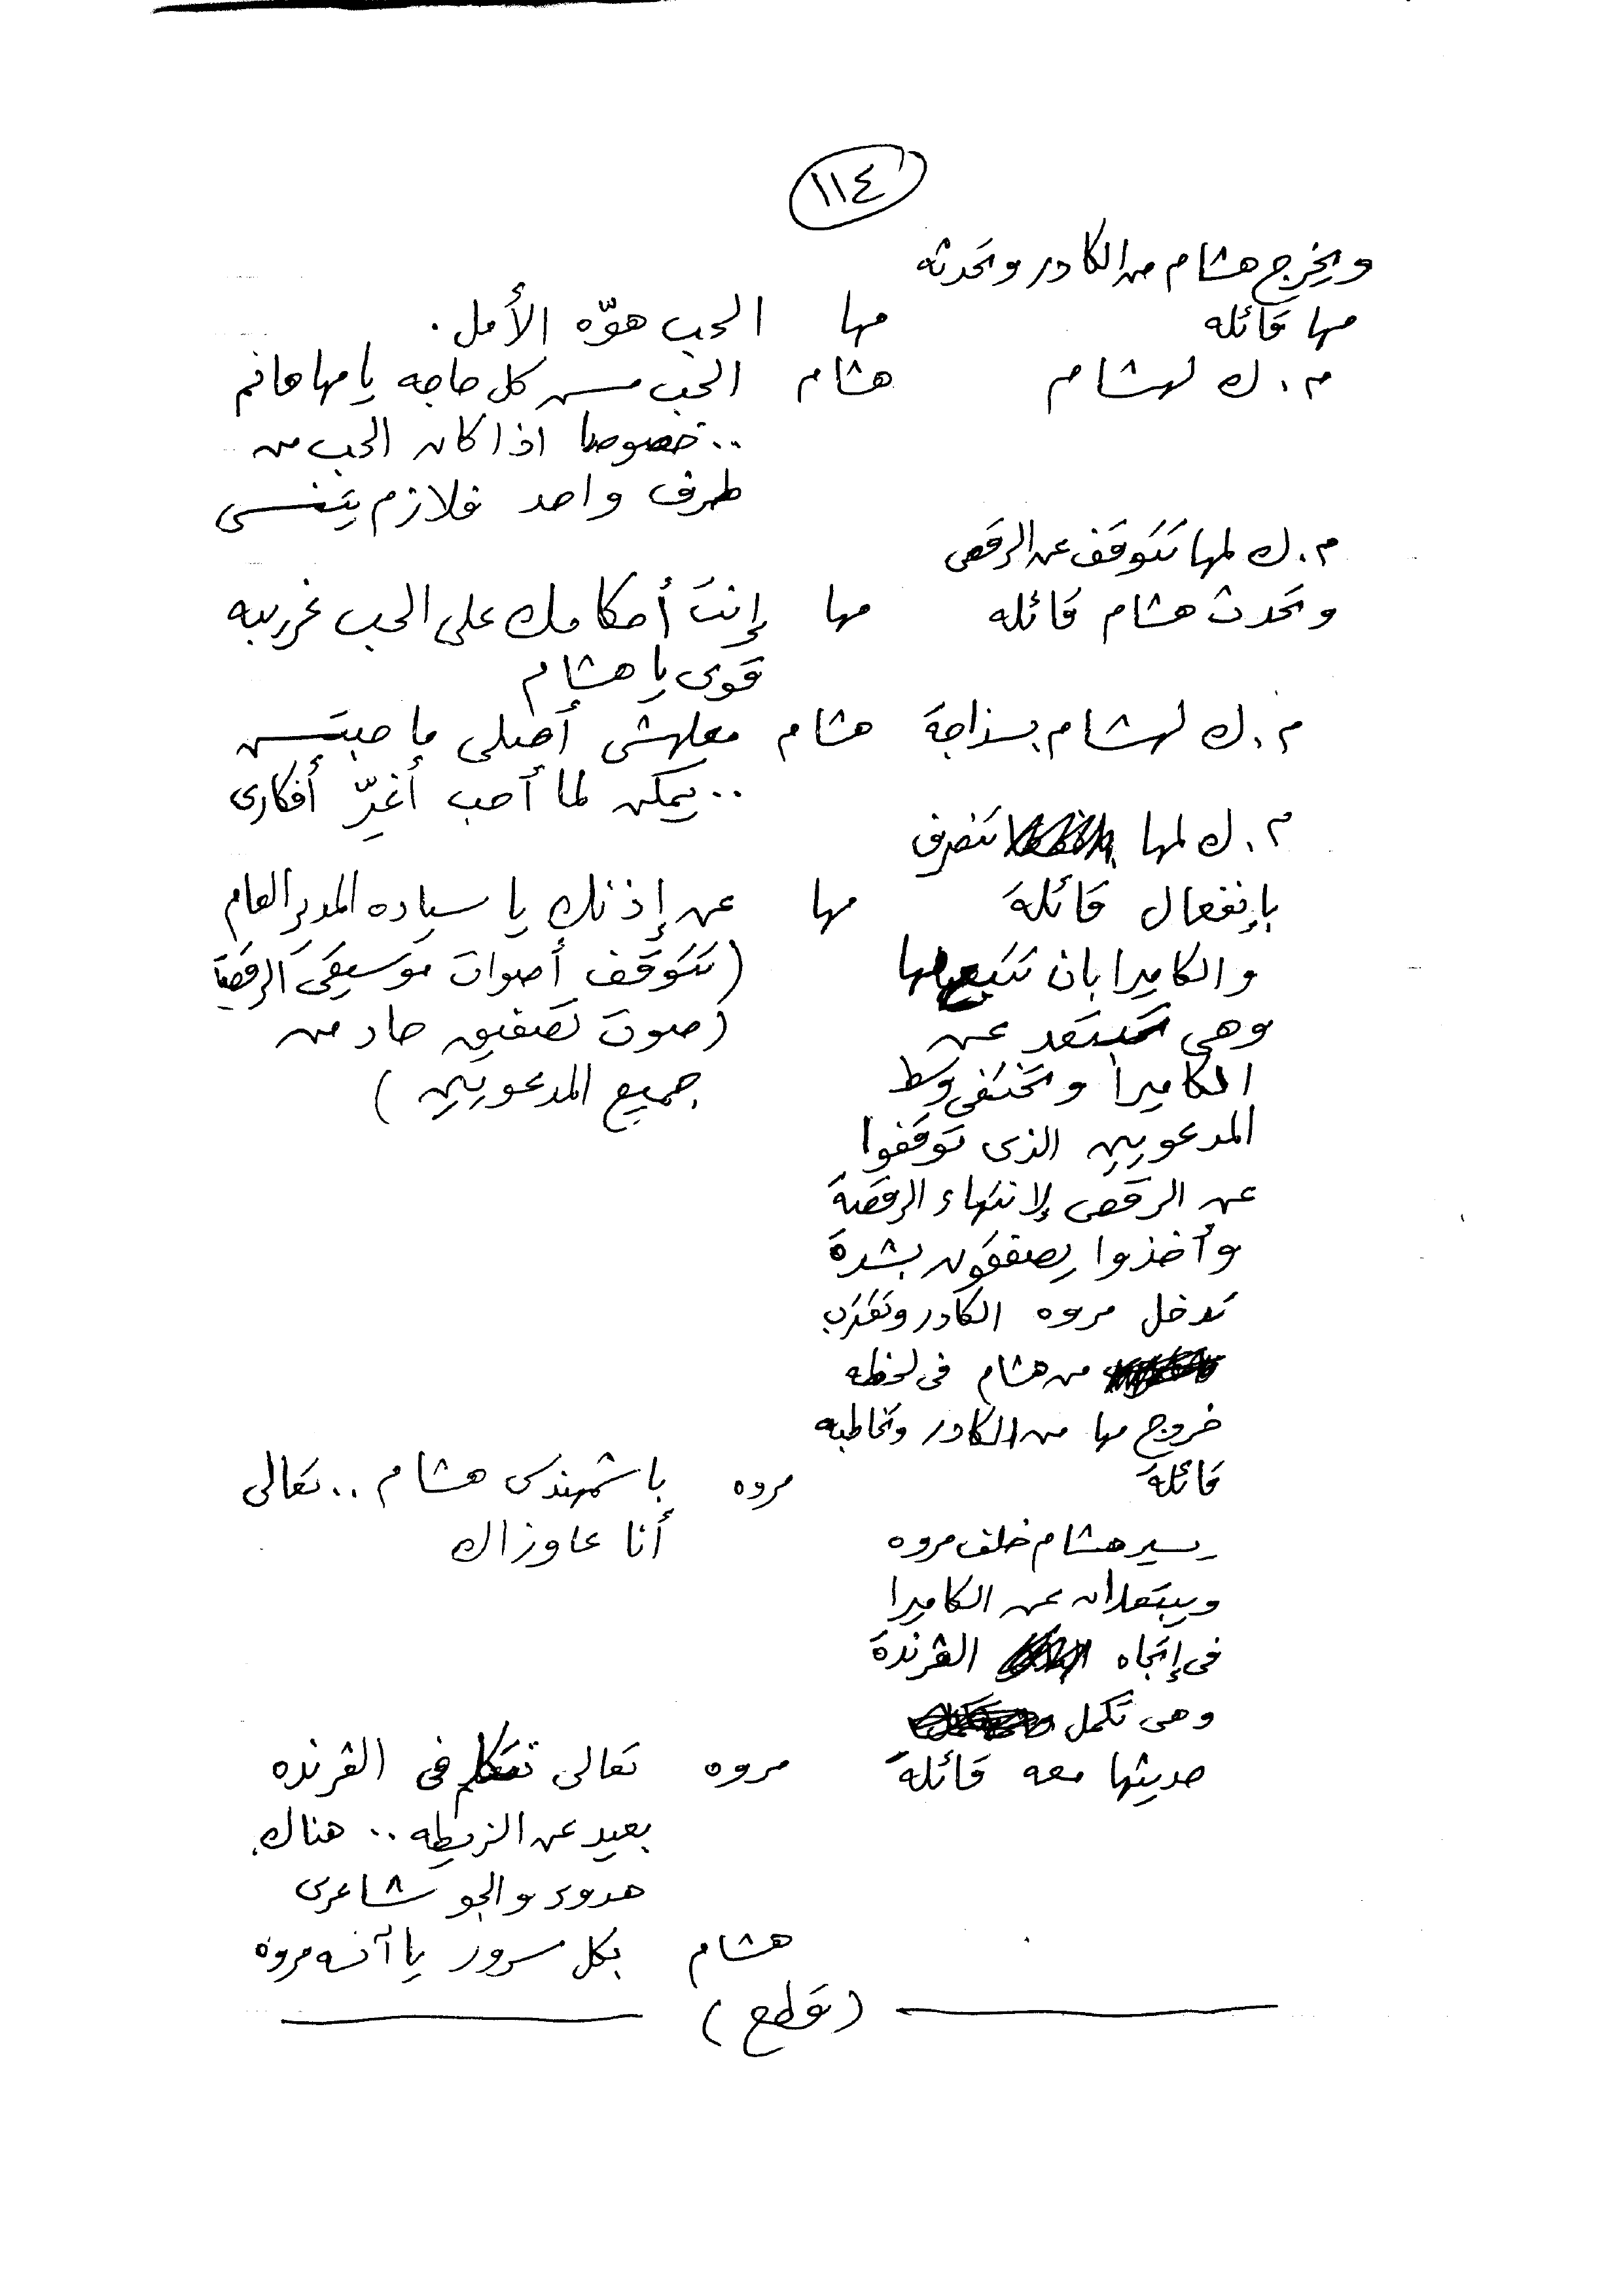 ١١٤
ويخرج هشام من الكادر وتحدثه
مها قائله مها الحب هوّه الأمل.
م.ك لهشام هشام الحب مش كل حاجه يا مها هانم
.. خصوصا اذا كان الحب من
طرف واحد فلازم يتنسى
م.ك لمها تتوقف عن الرقص
وتحدث هشام قائله مها إنت أحكامك على الحب غريبه
قوى يا هشام
م.ك لهشام بسذاجة هشام معلهش أصلى ما حبتش
.. يمكن لما أحب أغيّر أفكارى
م.ك لمها تنصرف
بإنفعال قائلة مها عن إذنك يا سياده المدير العام
والكاميرا بان تتبع مها (تتوقف أصوات موسيقى الرقصة
وهى تبتعد عن (صوت تصفيق حاد من
الكاميرا وتختفى وسط جميع المدعويين)
المدعويين الذى توقفوا
عن الرقص لإنتهاء الرقصة
وأخذوا يصفقون بشدة
تدخل مروه الكادر وتقترب
من هشام فى لحظه
خروج مها من الكادر وتخاطبه
قائلة مروه باشمهندس هشام .. تعالى
أنا عاوزاك
يسير هشام خلف مروه
ويبتعدان عن الكاميرا
فى إتجاه الڤرندة
وهى تكمل
حديثها معه قائلة مروه تعالى نتكلم فى الڤرنده
بعيد عن الزيطه .. هناك
هدوء والجو شاعرى
هشام بكل سرور يا آنسه مروه
(قطع)